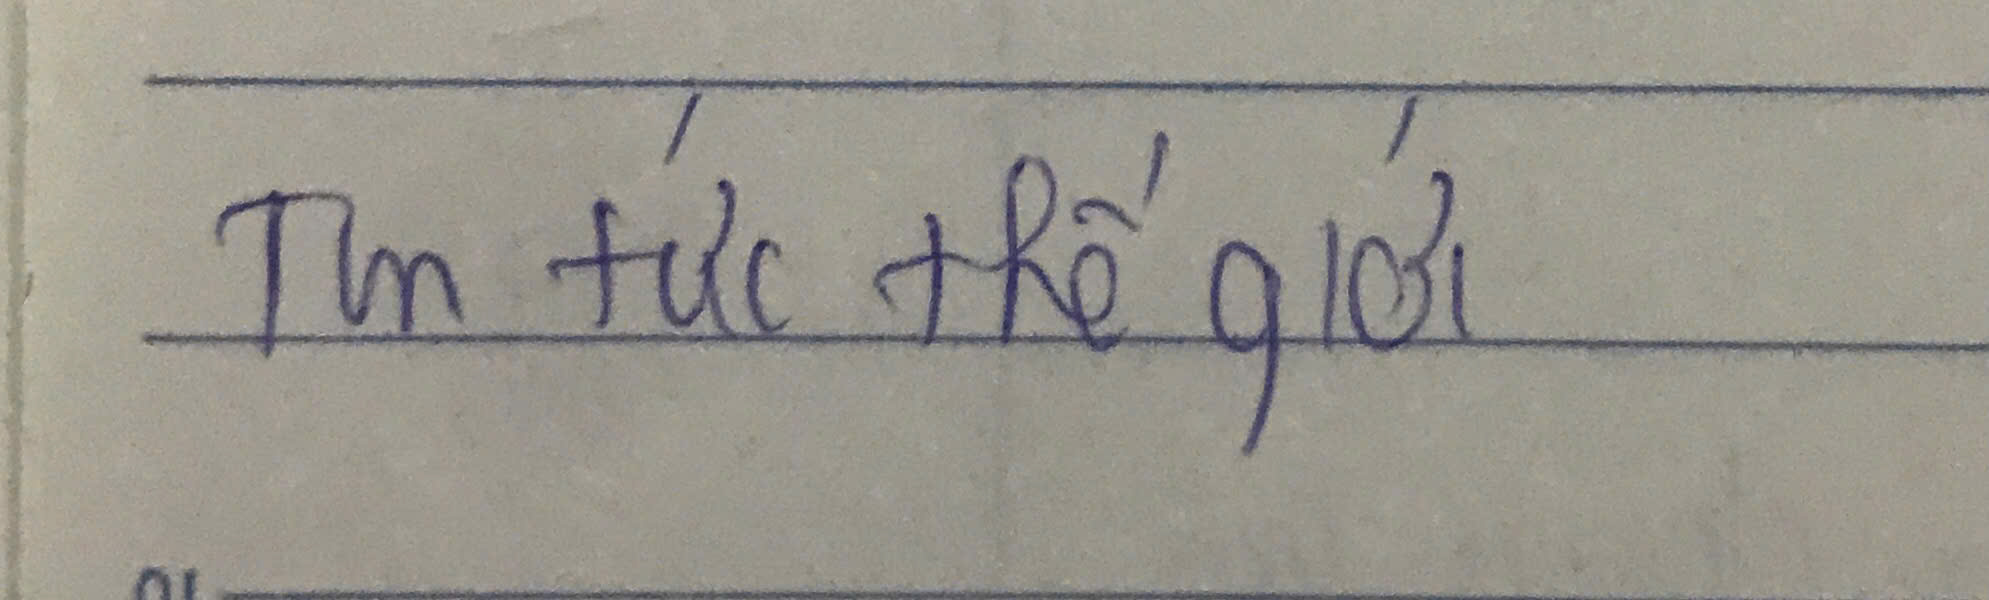 Tin tức thế giới